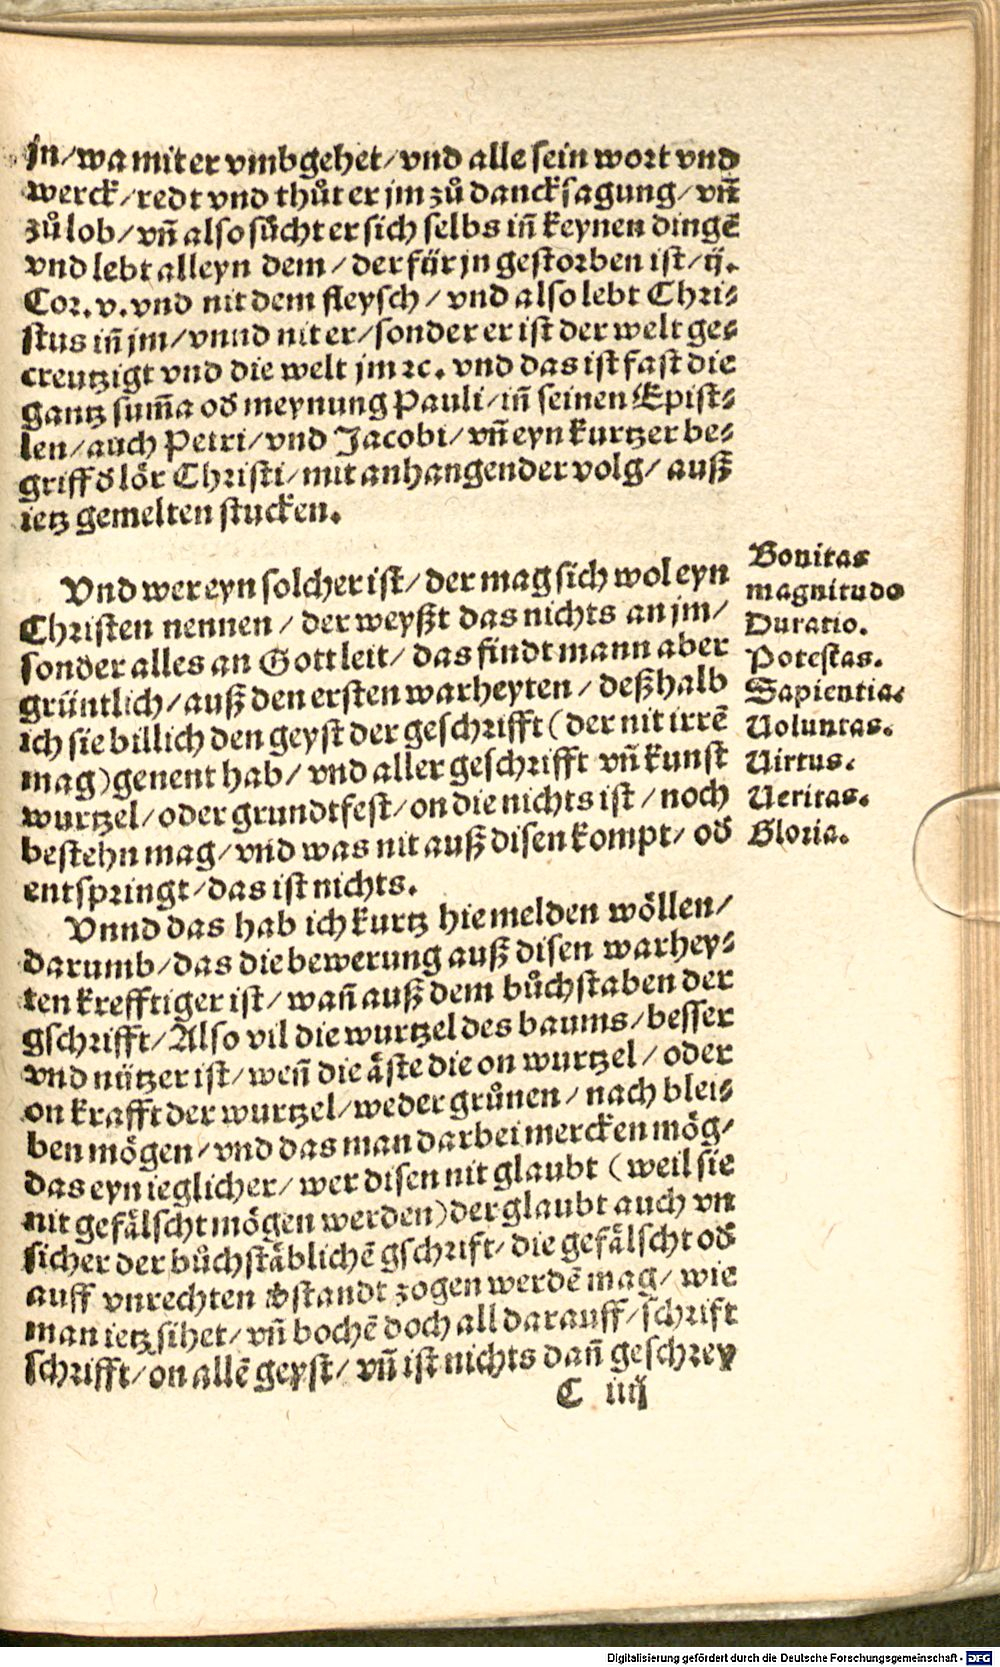 jn/wa mit er vmbgehet/vnd alle sein wort vnd
werck/redt vnd thůt er jm zů dancksagung/vñ
zů lob/vñ also sůcht er sich selbs iñ keynen dingē
vnd lebt alleyn dem/der für jn gestorben ist/ij.
Cor.v.vnd nit dem fleysch/vnd also lebt Chri⸗
stus iñ jm/vnnd nit er/sonder er ist der welt ge⸗
creutzigt vnd die welt jm ꝛc. vnd das ist fast die
gantz sum̄a oď meynung Pauli/iñ seinen Epist⸗
len/auch Petri/vnd Jacobi/vñ eyn kurtzer be⸗
griff ď lör Christi/mit anhangender volg/auß
ietz gemelten stucken.
Vnd wer eyn solcher ist/der mag sich wol eyn
Christen nennen/der weyßt das nichts an jm/
sonder alles an Gott leit/das findt mann aber
grüntlich/auß den ersten warheyten/deßhalb
ich sie billich den geyst der geschrifft (der nit irrē
mag) genent hab/vnd aller geschrifft vñ kunst
wurtzel/oder grundtfest/on die nichts ist/noch
bestehn mag/vnd was nit auß disen kompt/oď
entspringt/das ist nichts.
Bonitas
magnitudo
Duratio.
Potestas.
Sapientia.
Voluntas.
Virtus.
Veritas.
Gloria.
Vnnd das hab ich kurtz hie melden wöllen/
darumb/das die bewerung auß disen warhey⸗
ten krefftiger ist/wañ auß dem bůchstaben der
gschrifft/Also vil die wurtzel des baums/besser
vnd nützer ist/weñ die äste die on wurtzel/oder
on krafft der wurtzel/weder grůnen/nach blei⸗
ben mögen/vnd das man darbei mercken mög/
das eyn ieglicher/wer disen nit glaubt (weil sie
nit gefälscht mögen werden) der glaubt auch vn
sicher der bůchstäblichē gschrift/die gefälscht oď
auff vnrechten ꝟstandt zogen werdē mag/wie
man ietz sihet/vñ bochē doch all darauff/schrift
schrifft/on allē geyst/vñ ist nichts dañ geschrey
C iiij
Digitalisierung gefördert durch die Deutsche Forschungsgemeinschaft - DFG